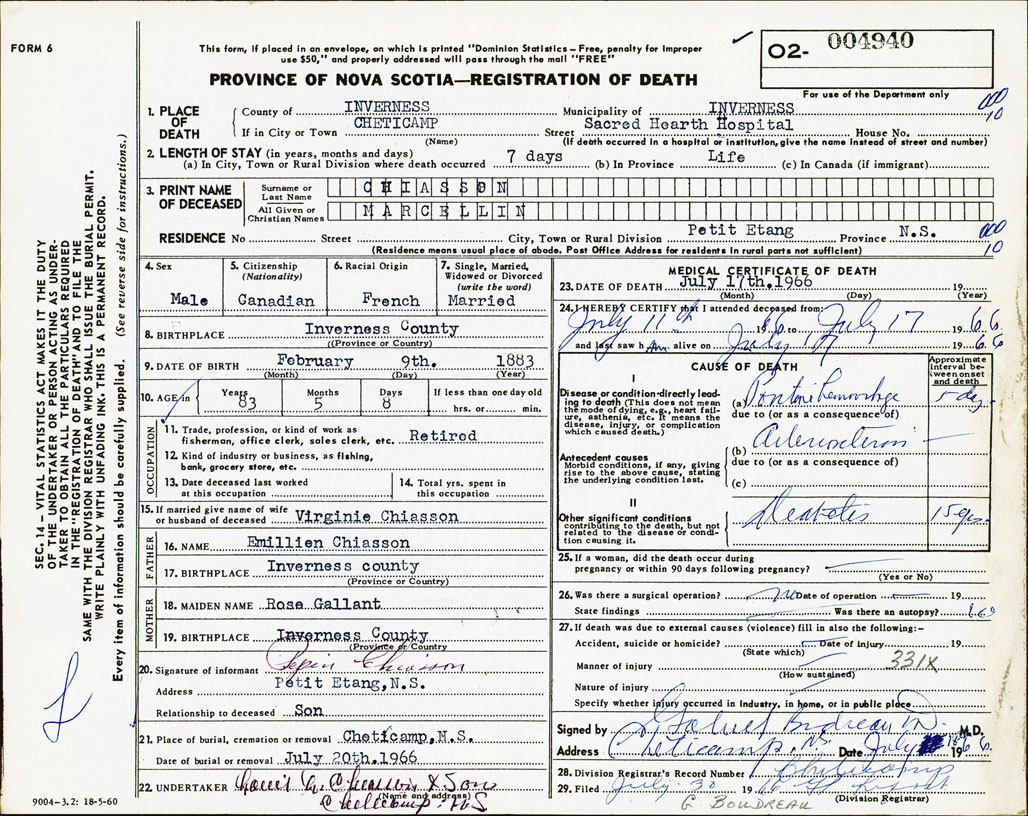 FORM 6
This form, if placed in an envelope, on which is printed "Dominion Statistics – Free, penalty for improper
use $50," and properly addressed will pass through the mail "FREE"
PROVINCE OF NOVA SCOTIA—REGISTRATION OF DEATH
O2- 004940
For use of the Department only
1. PLACE OF DEATH
County of INVERNESS Municipality of INVERNESS 000
10
If in City or Town CHETICAMP Street Sacred Hearth Hospital House No.
(Name) (If death occurred in a hospital or institution, give the name instead of street and number)
2. LENGTH OF STAY (in years, months and days)
(a) In City, Town or Rural Division where death occurred 7 days (b) In Province Life (c) In Canada (if immigrant)
3. PRINT NAME OF DECEASED
Surname or Last Name CHIASSON
All Given or Christian Names MARCELLIN
RESIDENCE No Street City, Town or Rural Division Petit Etang Province N.S. 000
10
(Residence means usual place of abode. Post Office Address for residents in rural parts not sufficient)
4. Sex Male
5. Citizenship (Nationality) Canadian
6. Racial Origin French
7. Single, Married, Widowed or Divorced (write the word) Married
8. BIRTHPLACE Inverness County
(Province or Country)
9. DATE OF BIRTH February 9th. 1883
(Month) (Day) (Year)
10. AGE in Years 83 Months 5 Days 8 If less than one day old hrs. or min.
OCCUPATION
11. Trade, profession, or kind of work as
fisherman, office clerk, sales clerk, etc. Retired
12. Kind of industry or business, as fishing,
bank, grocery store, etc.
13. Date deceased last worked
at this occupation
14. Total yrs. spent in
this occupation
15. If married give name of wife
or husband of deceased Virginie Chiasson
FATHER
16. NAME Emillien Chiasson
17. BIRTHPLACE Inverness county
(Province or Country)
MOTHER
18. MAIDEN NAME Rose Gallant
19. BIRTHPLACE Inverness County
(Province or Country)
20. Signature of informant Pepin Chiasson
Address Petit Etang, N.S.
Relationship to deceased Son
21. Place of burial, cremation or removal Cheticamp, N.S.
Date of burial or removal July 20th.1966
22. UNDERTAKER Chiasson & Son
(Name and address)
Cheticamp. NS
MEDICAL CERTIFICATE OF DEATH
23. DATE OF DEATH July 17th.1966 19
(Month) (Day) (Year)
24. I HEREBY CERTIFY that I attended deceased from:
July 11th 1966 to July 17 1966
and last saw him alive on July 17 1966
CAUSE OF DEATH
Approximate interval between onset and death
I
Disease or condition directly leading to death (This does not mean the mode of dying, e.g., heart failure, asthenia, etc. It means the disease, injury, or complication which caused death.)
(a) Pontine hemorrhage 5 days
due to (or as a consequence of)
(b)
Antecedent causes
Morbid conditions, if any, giving rise to the above cause, stating the underlying condition last.
due to (or as a consequence of)
(c)
II
Other significant conditions
contributing to the death, but not related to the disease or condition causing it.
Diabetes 15 yrs.
25. If a woman, did the death occur during
pregnancy or within 90 days following pregnancy?
(Yes or No)
26. Was there a surgical operation? no Date of operation 19
State findings Was there an autopsy?
27. If death was due to external causes (violence) fill in also the following:–
Accident, suicide or homicide? Date of injury 19
(State which)
Manner of injury 331X
(How sustained)
Nature of injury
Specify whether injury occurred in industry, in home, or in public place
Signed by Gabriel Boudreau M.D.
Address Cheticamp, NS. Date July 1966
28. Division Registrar's Record Number Cheticamp
29. Filed July 30 1966
(Division Registrar)
G. BOUDREAU
9004–3.2: 18-5-60
SEC. 14 – VITAL STATISTICS ACT MAKES IT THE DUTY
OF THE UNDERTAKER OR PERSON ACTING AS UNDER-
TAKER TO OBTAIN ALL THE PARTICULARS REQUIRED
IN THE "REGISTRATION OF DEATH" AND TO FILE THE
SAME WITH THE DIVISION REGISTRAR WHO SHALL ISSUE THE BURIAL PERMIT.
WRITE PLAINLY WITH UNFADING INK. THIS IS A PERMANENT RECORD.
Every item of information should be carefully supplied. (See reverse side for instructions.)